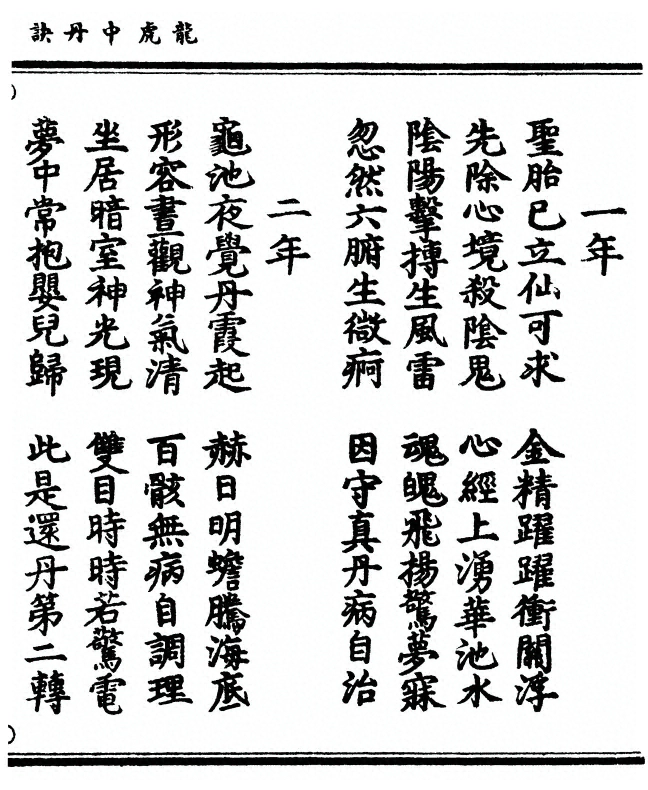 龍虎中丹訣
一年
聖胎已立仙可求　金精躍躍衝關浮
先除心境殺陰鬼　心經上湧華池水
陰陽擊搏生風雷　魂魄飛揚驚夢寐
忽然六腑生微痾　因守真丹病自治
二年
龜池夜覺丹霞起　赫日明蟾騰海底
形容晝觀神氣清　百骸無病自調理
坐居暗室神光現　雙目時時若驚電
夢中常抱嬰兒歸　此是還丹第二轉